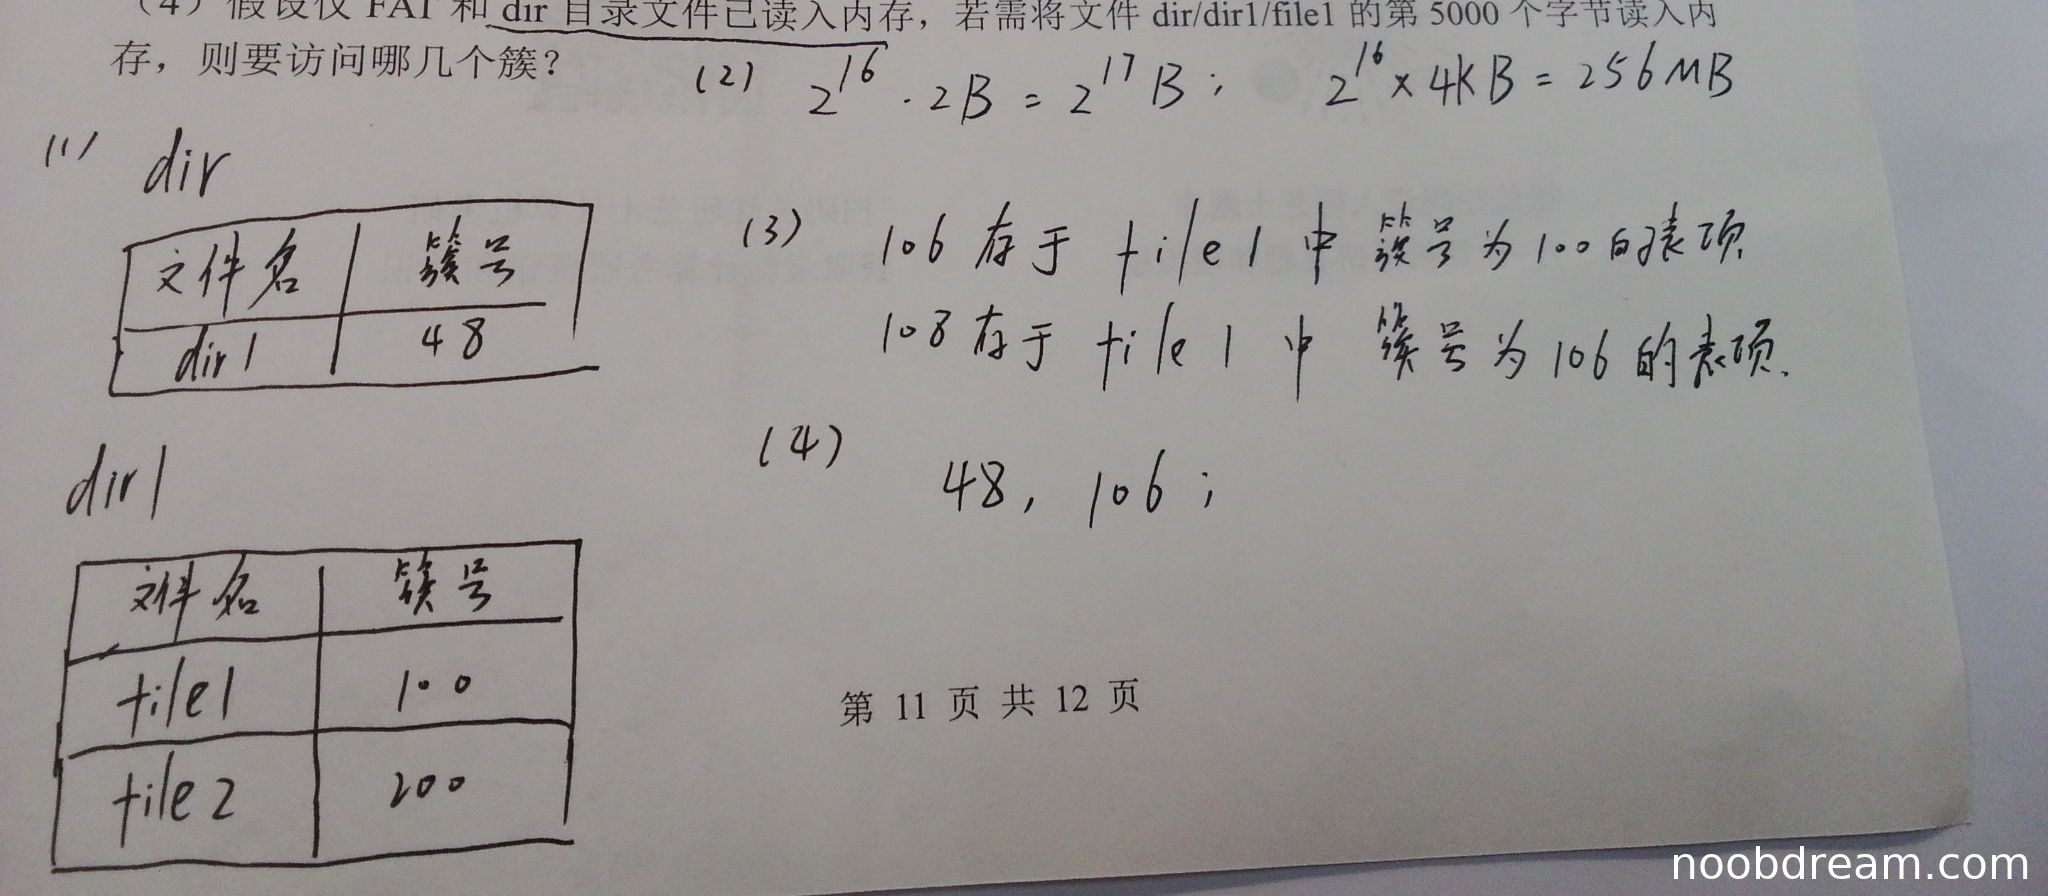 （4）假设仅 FAT 和 dir 目录文件已读入内存，若需将文件 dir/dir1/file1 的第 5000 个字节读入内
存，则要访问哪几个簇？
(2) 2^16 · 2B = 2^17 B； 2^16 × 4KB = 256MB
(1) dir
文件名 簇号
dir1 48
(3) 106 存于 file1 中 簇号为100的表项
108 存于 file1 中 簇号为 106 的表项.
(4) 48, 106；
dir1
文件名 簇号
file1 100
file2 200
第 11 页 共 12 页
noobdream.com